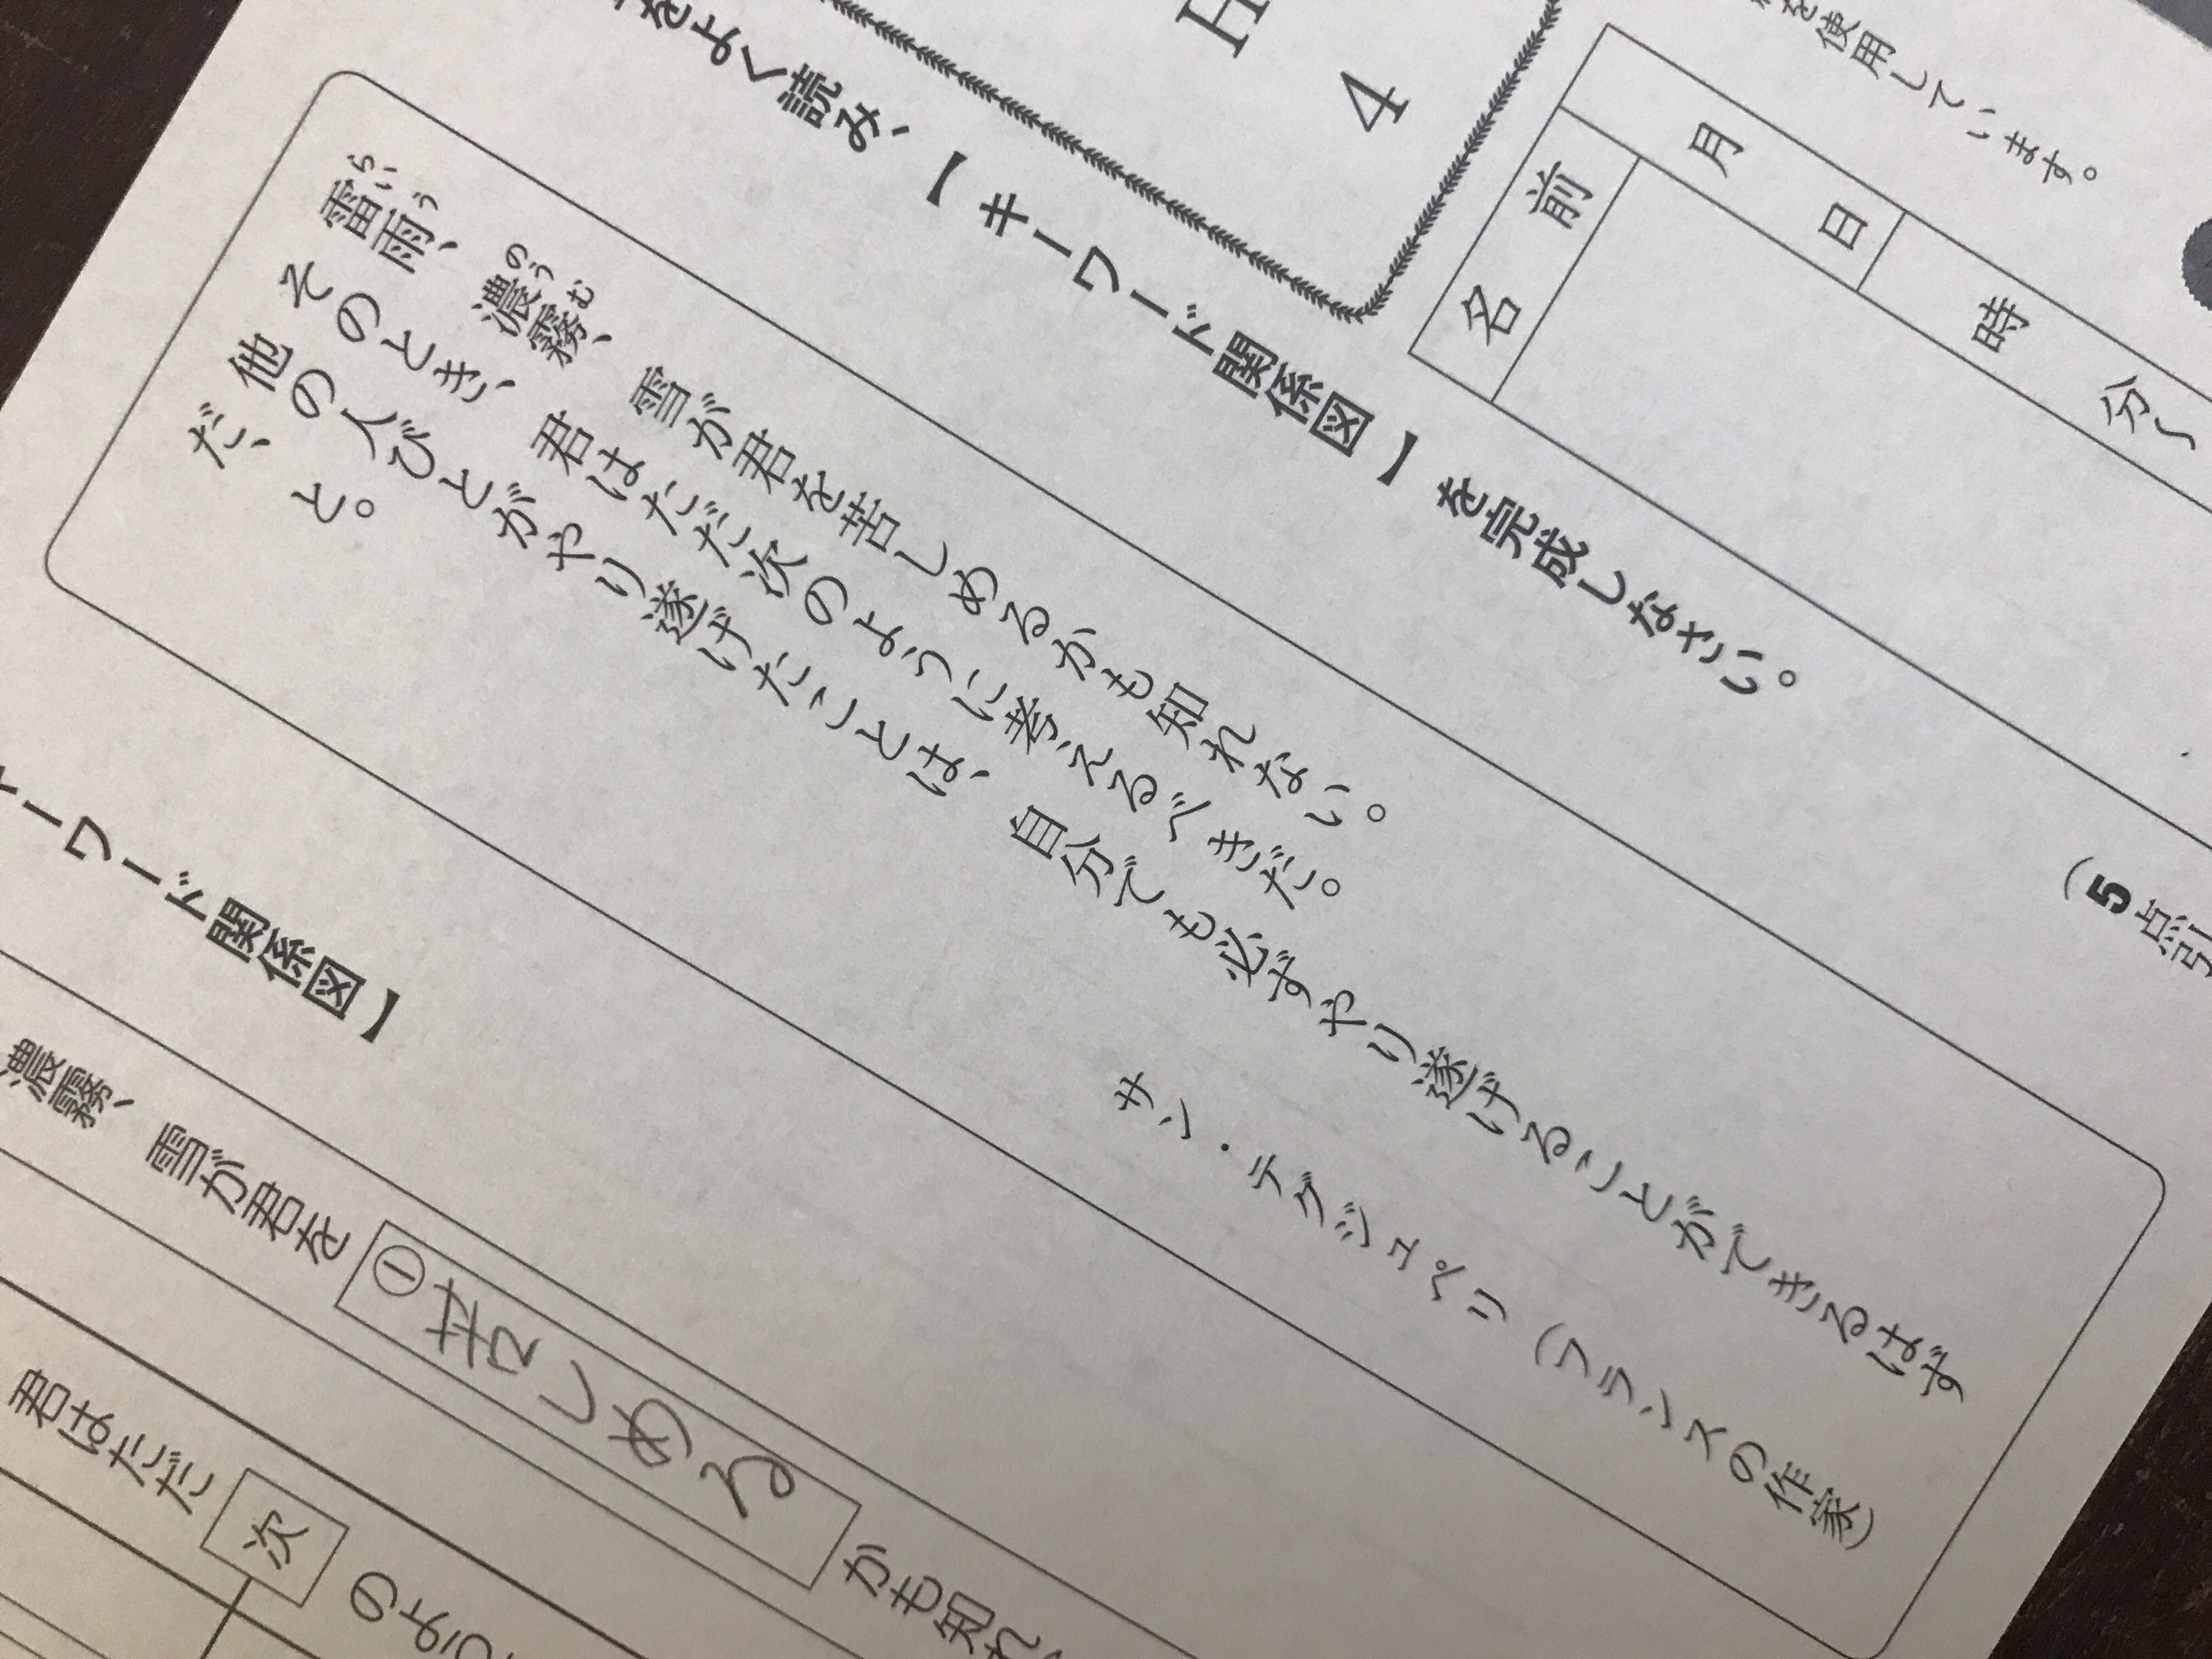 を使用しています。
月 日 時 分〜
名前
H
4
をよく読み、【キーワード関係図】を完成しなさい。
(5点引
雷雨、濃霧、雪が君を苦しめるかも知れない。
らいう のうむ
そのとき、君はただ次のように考えるべきだ。
他の人びとがやり遂げたことは、自分でも必ずやり遂げることができるはず
だ、と。
サン・テグジュペリ(フランスの作家)
ーワード関係図】
濃霧、雪が君を ① 苦しめる かも知れ
君はただ 次 のよう